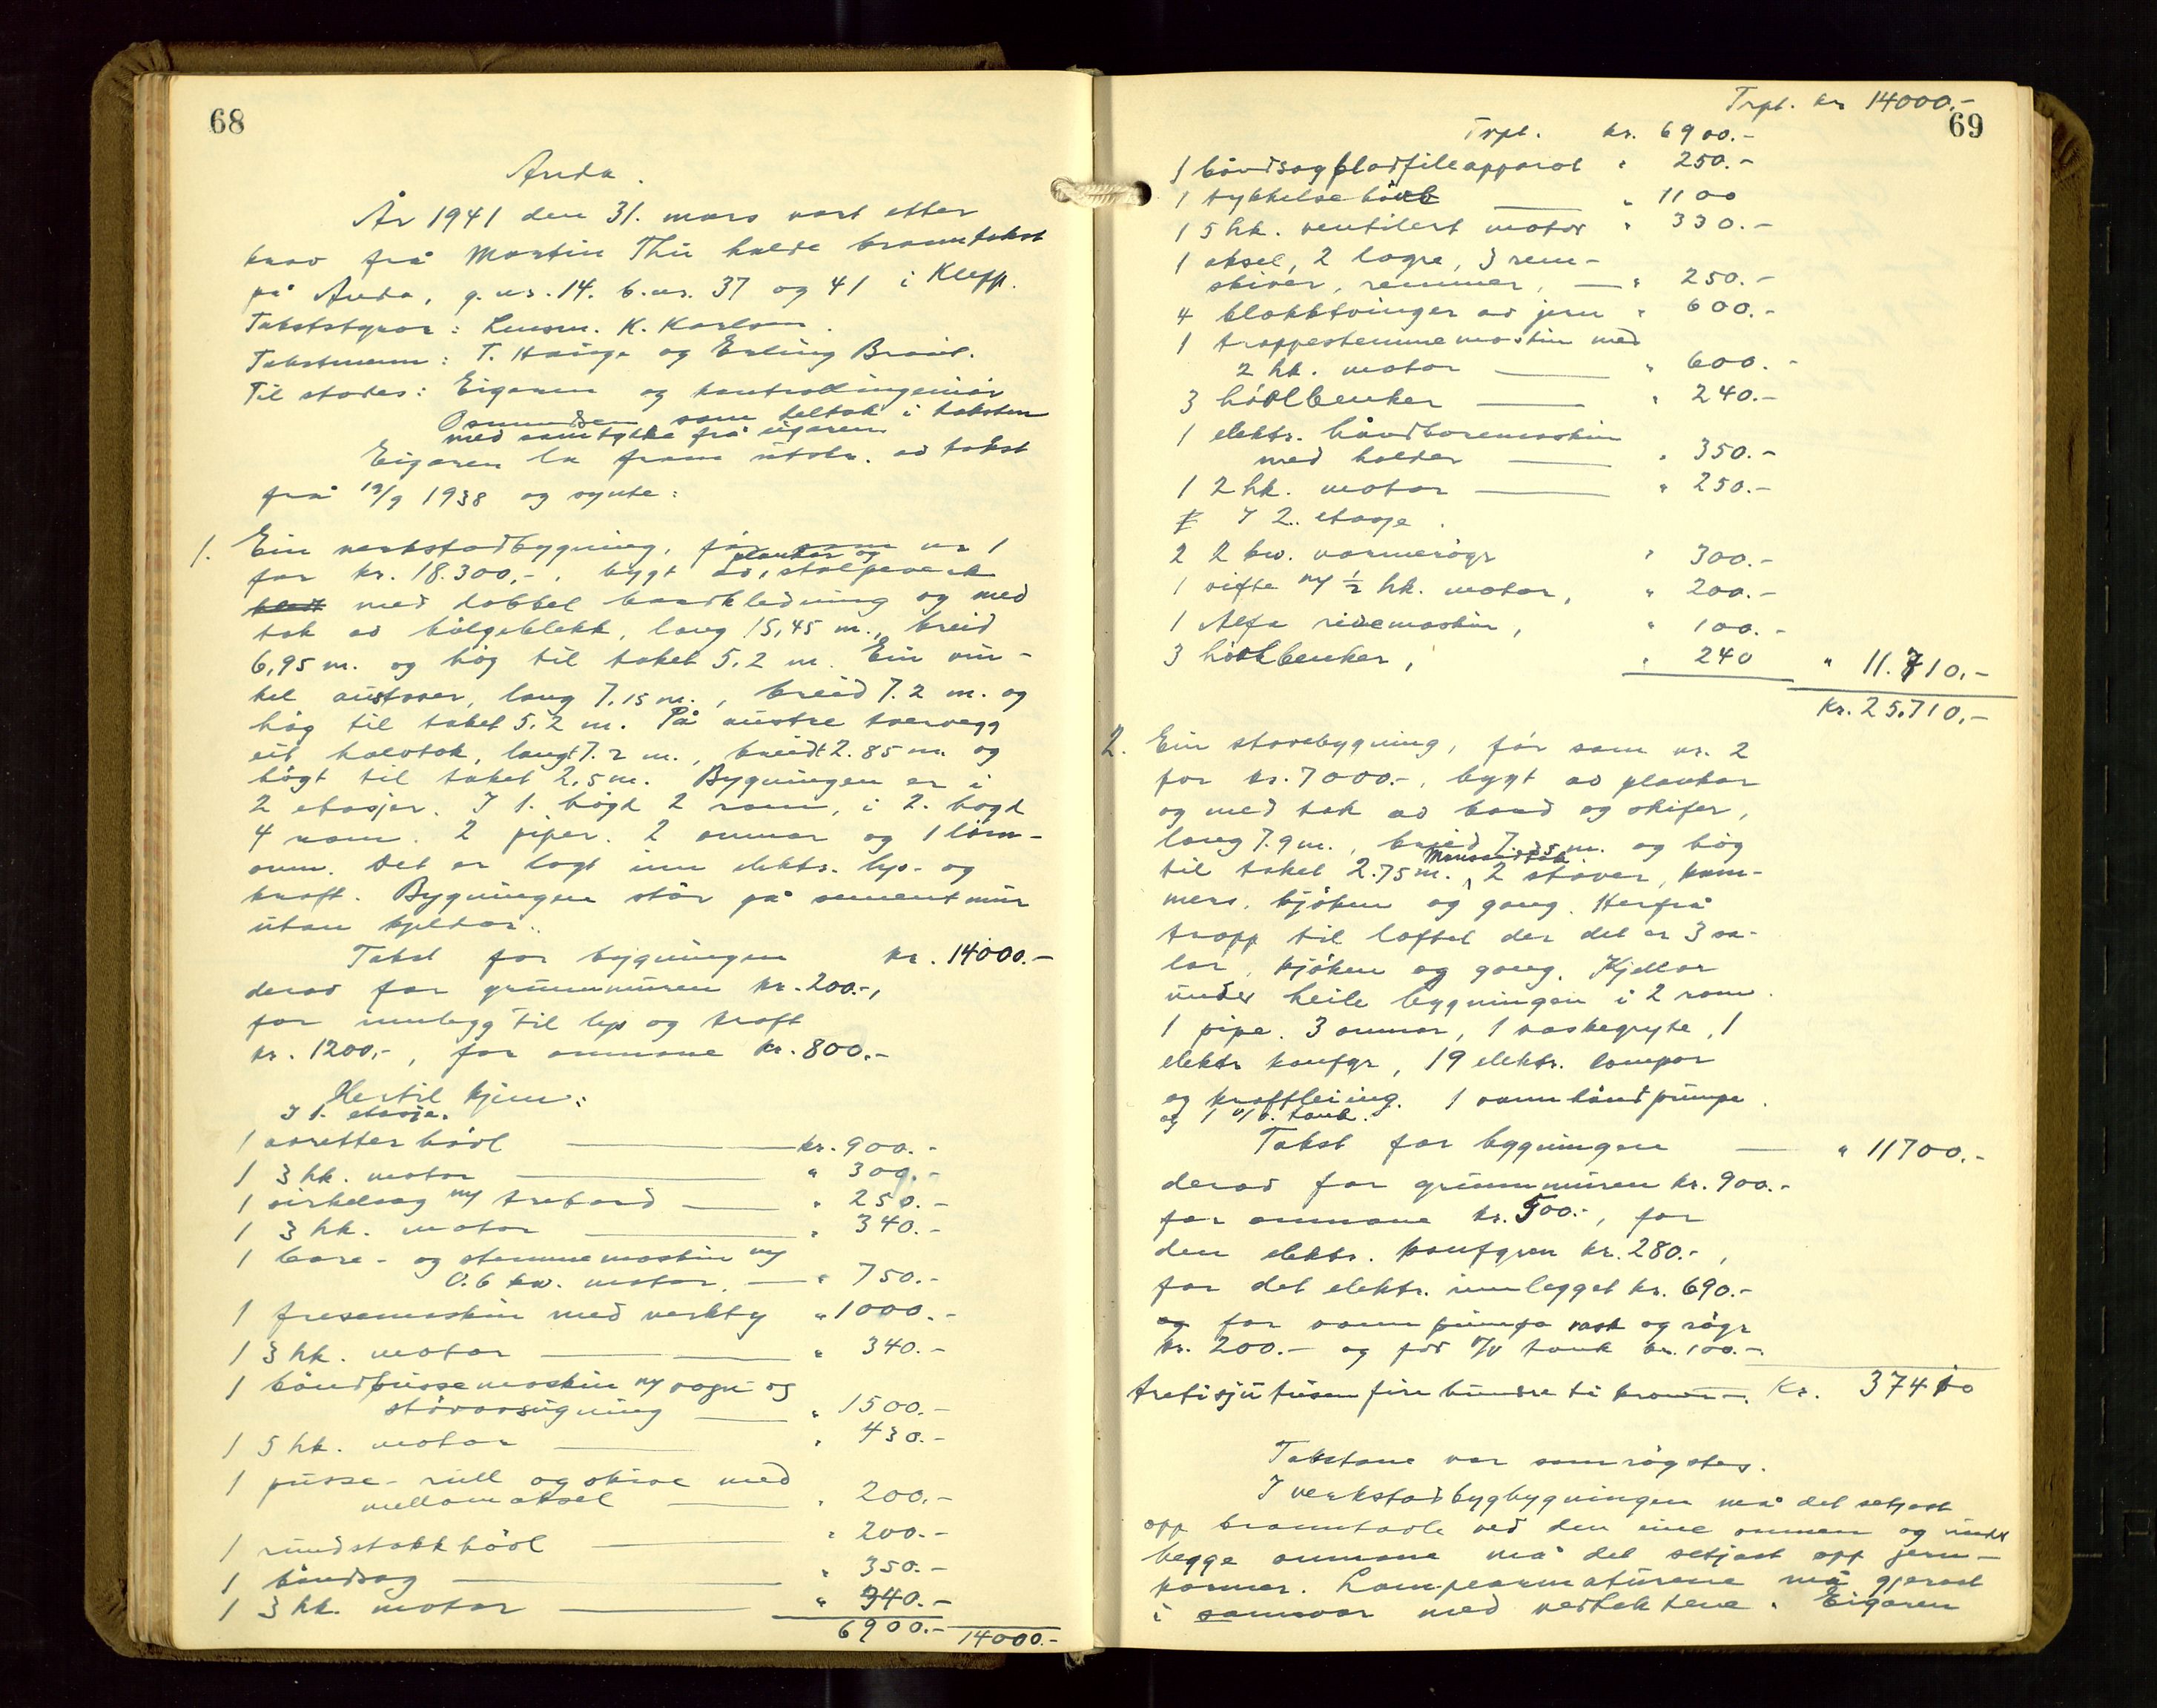 68
Anda.
År 1941 den 31. mars vart etter
krav frå Martin Thu halde branntakst
på Anda, g.nr. 14. b.nr. 37 og 41 i Klepp.
Takststyrar: Lensm. K. Karlsen.
Takstmenn: T. Hauge og Erling Braut.
Til stades: Eigaren og kontrollingeniør
Osmundsen som deltok i taksten
med samtykke frå eigaren.
Eigaren la fram utskr. av takst
frå 19/9 1938 og synte:
1. Ein verkstadbygning, før som nr 1
for kr. 18.300,-, bygt av plankar og stolpeverk
med dobbel bordkledning og med
tak av bølgeblekk, lang 15,45 m., breid
6,95 m. og høg til taket 5,2 m. Ein vin-
kel austover, lang 7,15 m., breid 7.2 m. og
høg til taket 5,2 m. På austre tvervegg
eit halvtak, langt 7.2 m., breidt 2.85 m. og
høgt til taket 2,5 m. Bygningen er i
2 etasjer. I 1. høgd 2 rom, i 2. høgd
4 rom. 2 piper. 2 omnar og 1 lim-
omn. Det er lagt inn elektr. lys- og
kraft. Bygningen står på sementmur
utan kjellar.
Takst for bygningen kr. 14000.-
derav for grunnmuren kr. 200.-,
for innlegg til lys og kraft
kr. 1200,-, for omnane kr. 800.-
Hertil kjem:
I 1. etasje.
1 avretter høvl kr. 900.-
1 3 hk. motor " 300.-
1 sirkelsag m/ trebord " 250.-
1 3 hk. motor " 340.-
1 bore- og stemmemaskin m/
0.6 kw. motor, " 750.-
1 fresemaskin med verkty " 1000.-
1 3 hk. motor " 340.-
1 båndpussemaskin m/ vogn og
støvavsugning " 1500.-
1 5 hk. motor " 430.-
1 pusse- rull og skive med
mellomaksel " 200.-
1 rundstokkhøvl " 200.-
1 båndsag " 350.-
1 3 hk. motor " 340.-
6900.- 14000.-
69
Trpt. kr 14000.-
Trpt. kr. 6900.-
1 båndsagbladfileapparat " 250.-
1 tykkelse høvl " 1100
1 5 hk. ventilert motor " 330.-
1 aksel, 2 lagre, 3 rem-
skiver, remmer, " 250.-
4 blokktvinger av jern " 600.-
1 trappestemmemaskin med
2 hk. motor " 600.-
3 høvlbenker " 240.-
1 elektr. håndboremaskin
med holder " 350.-
1 2 hk. motor " 250.-
I 2. etasje.
2 2 kw. varmerøyr " 300.-
1 vifte m/ 1/2 hk. motor, " 200.-
1 Alfa rivemaskin, " 100.-
3 høvlbenker, " 240 " 11.710,-
Kr. 25.710,-
2. Ein stovebygning, før som nr. 2
for kr. 7000.-, bygt av plankar
og med tak av bord og skifer,
lang 7.9 m., breid 7.35 m. og høg
til taket 2.75 m. Mansardtak. 2 stover, kam-
mers, kjøken og gang. Herfrå
trapp til loftet der det er 3 sa-
lar, kjøken og gang. Kjellar
under heile bygningen i 2 rom.
1 pipe. 3 omnar, 1 vaskegryte, 1
elektr komfyr, 19 elektr. lampor
og kraftleiing. 1 vann håndpumpe.
og 1 v/v. tank.
Takst for bygningen " 11700.-
derav for grunnmuren kr. 900.-
for omnane kr. 500.-, for
den elektr. komfyren kr. 280.-,
for det elektr. innlegget kr. 690.-
og for vann pumpa vask og røyr
kr. 200.- og for v/v tank kr. 100.-
tretisjutusen fire hundre ti kroner. Kr. 37410
Takstane var samrøystes.
I verkstadbygbygningen må det setjast
opp branntavle ved den eine omnen og under
begge omnane må det setjast opp jern-
karmer. Lampearmaturene må gjerast
i samsvar med vedtektene. Eigaren